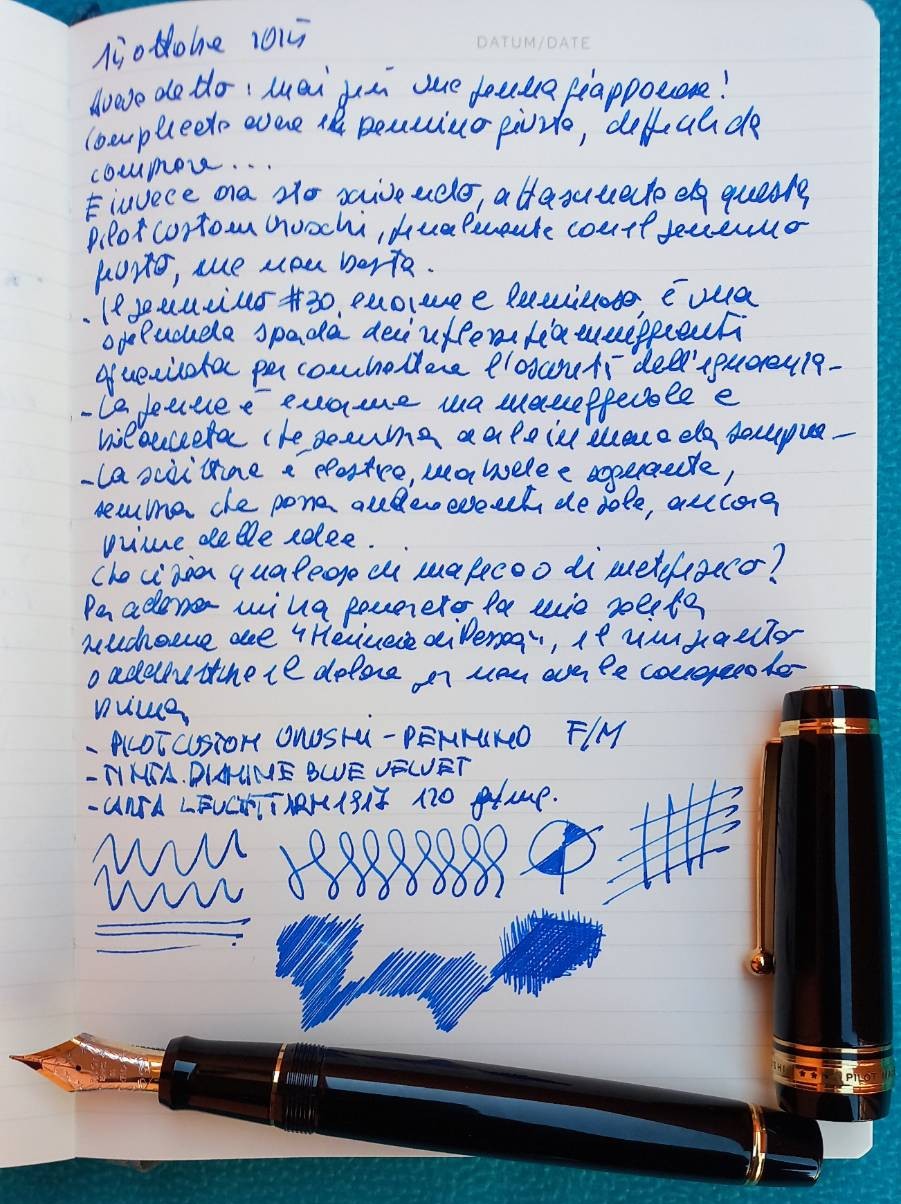 DATUM/DATE
15 ottobre 2025
Avevo detto: mai più una penna giapponese!
Complicato avere il pennino giusto, difficili da
comprare...
E invece ora sto scrivendo, affascinato da questa
Pilot Custom Urushi, finalmente con il pennino
giusto, ma non basta.
- Il pennino #30, enorme e luminoso, è una
splendida spada dai riflessi fiammeggianti
affilata per combattere l'oscurità dell'ignoranza -
- La penna è enorme ma maneggevole e
bilanciata che sembra in mano da sempre -
- La scrittura è elastica, morbida e sognante,
sembra che possa andare avanti da sola, ancora
prima delle idee.
Che ci sia qualcosa di magico o di metafisico?
Per adesso mi ha generato la mia solita
sindrome del "Heinrich di Pessoa", il rimpianto
o addirittura il dolore per non averla comprata
prima
- PILOT CUSTOM URUSHI - PENNINO F/M
- TINTA DIAMINE BLUE VELVET
- CARTA LEUCHTTURM 1917 120 gr/mq.
PILOT